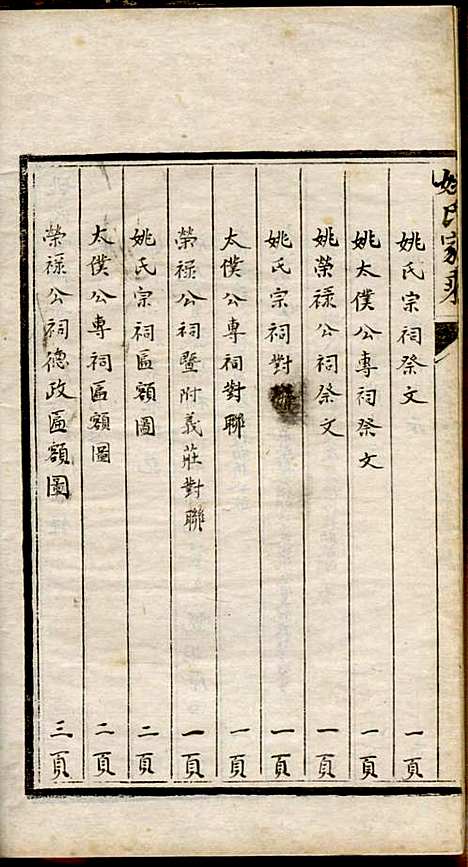 姚氏家乘
姚氏宗祠祭文 一頁
姚太僕公專祠祭文 一頁
姚榮祿公祠祭文 一頁
姚氏宗祠對 一頁
太僕公專祠對聯 一頁
榮祿公祠暨附義莊對聯 一頁
姚氏宗祠匾額圖 二頁
太僕公專祠匾額圖 二頁
榮祿公祠德政匾額圖 三頁